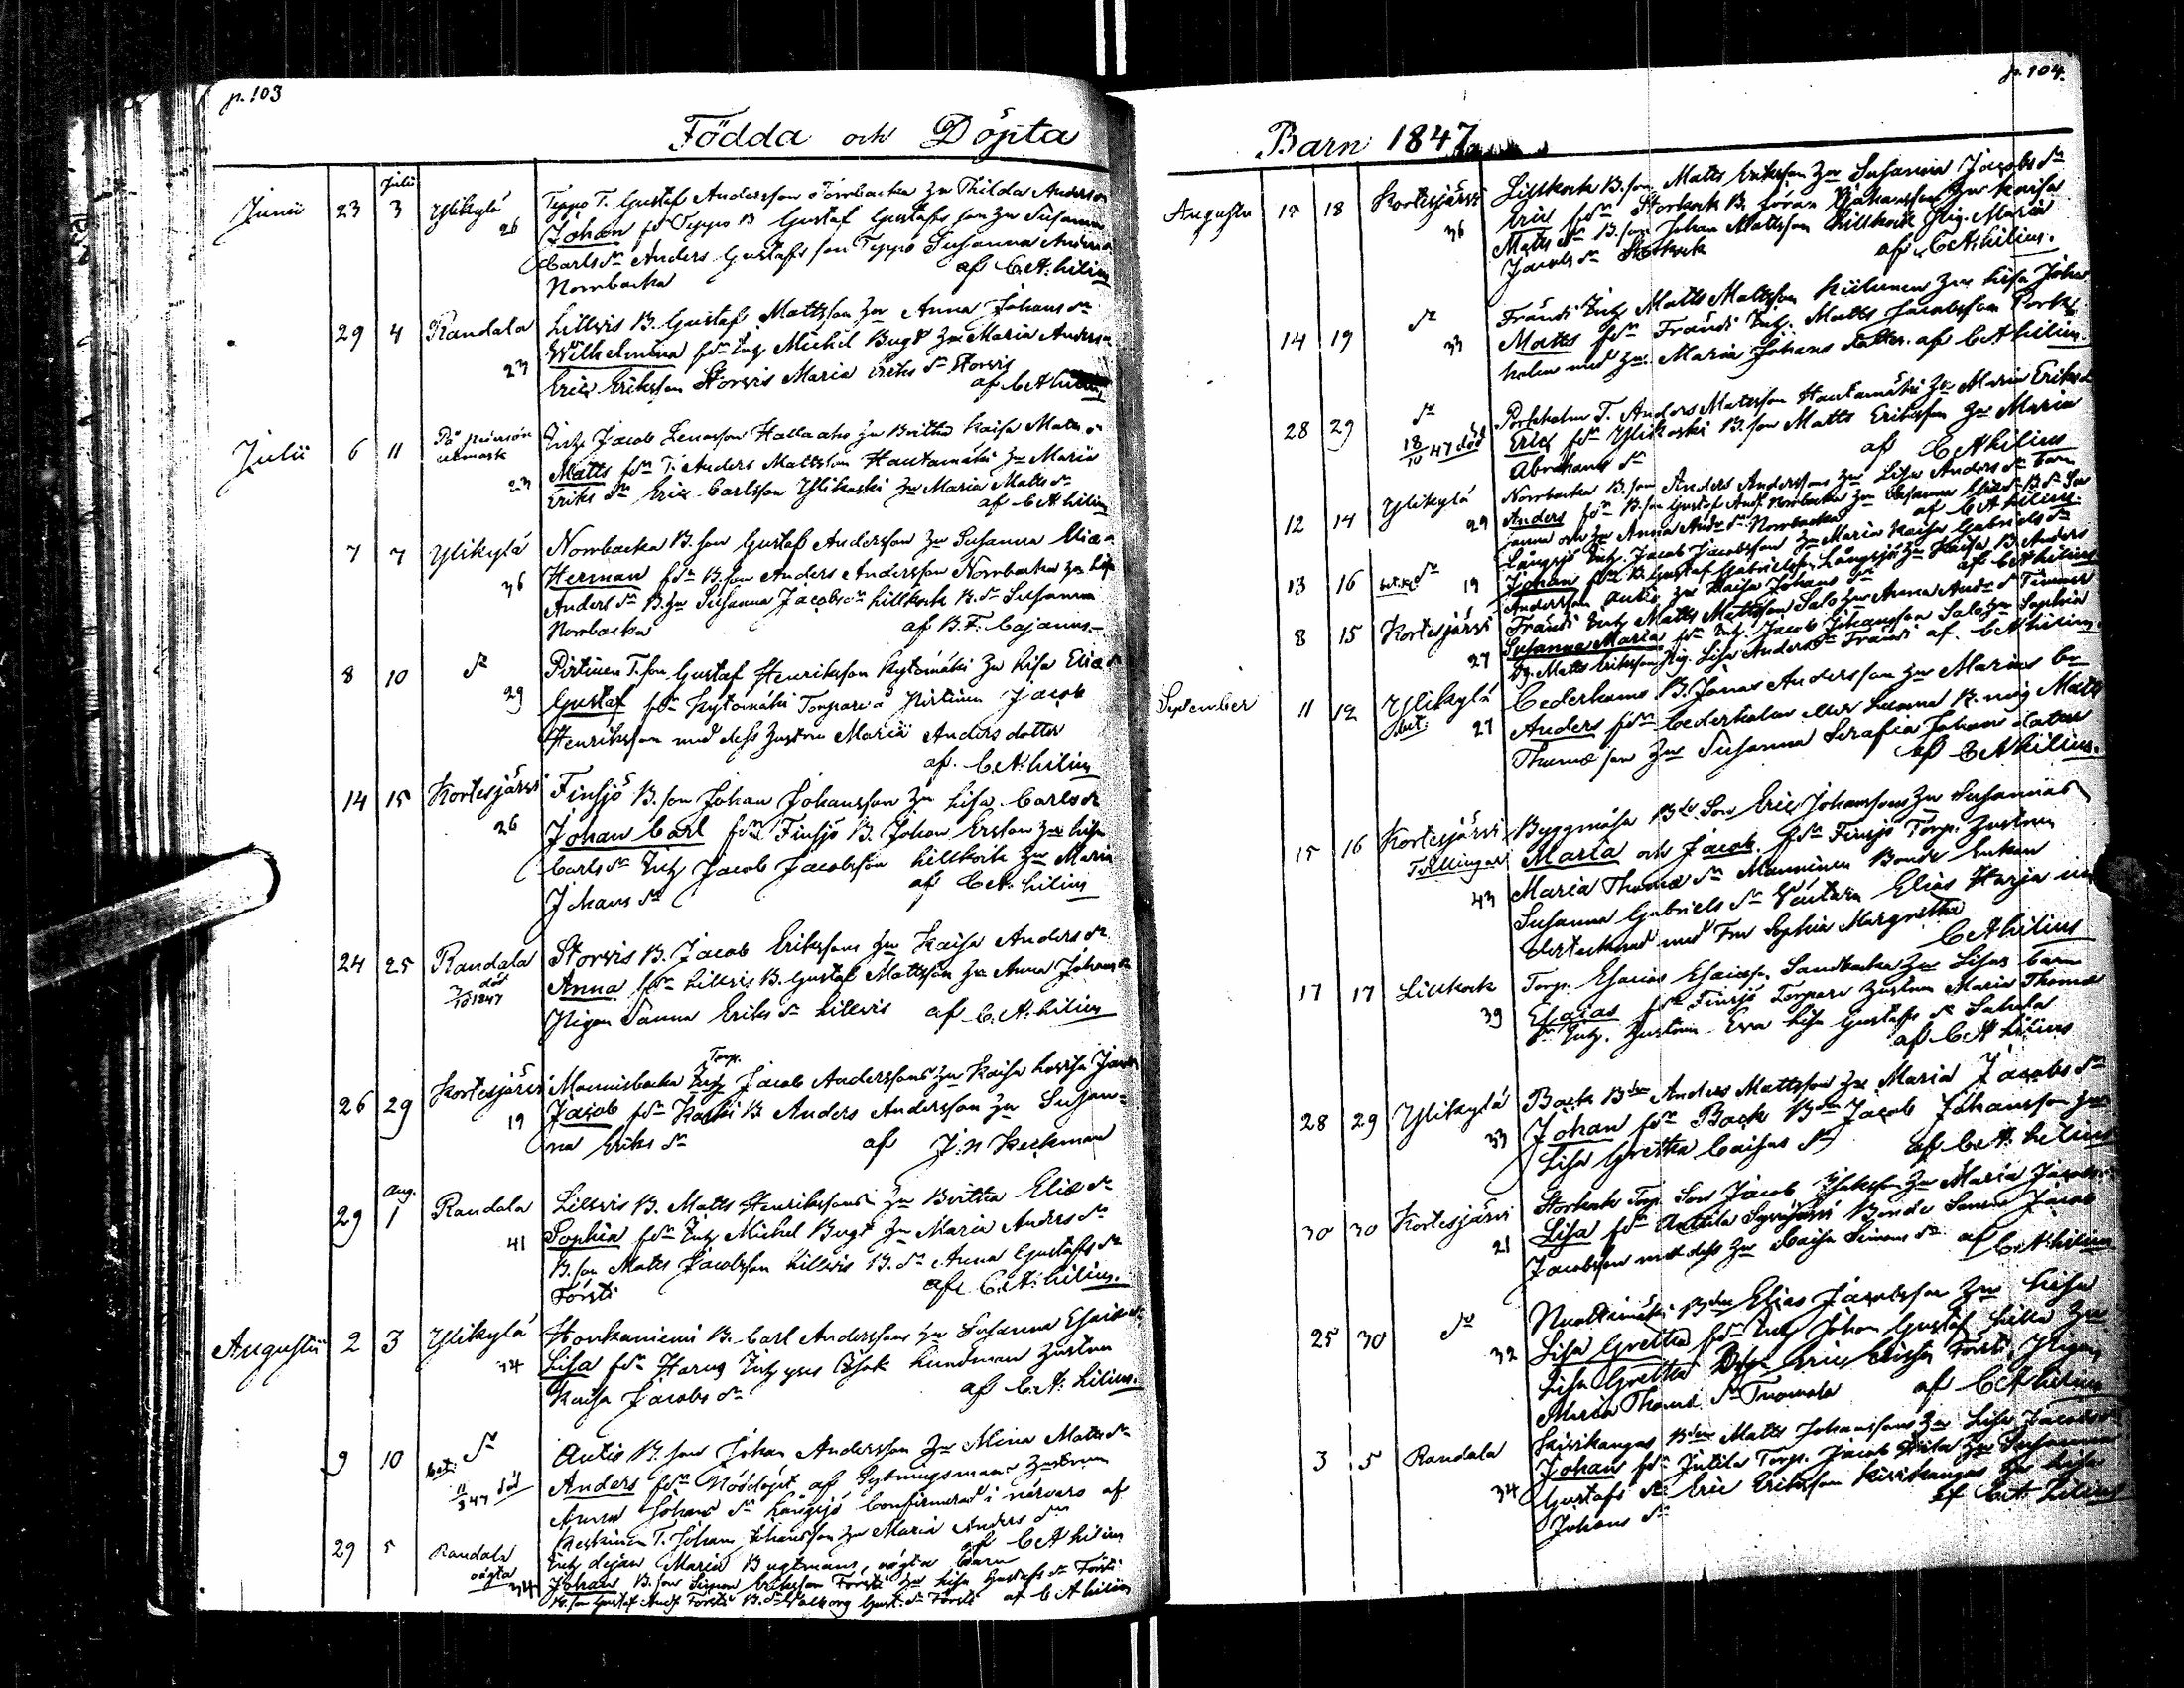 p. 103
Födda och Döpta
Junii 23 Julii 3 Ylikylä 26 Teppo T. Gustaf Andersson Norrbacka Hu Thilda Anders
Johan fdr Teppo B Gustaf Gustafsson Hu Susanna
Carls dr Anders Gustafsson Teppo Susanna
Norrbacka af C. A. Lilius
29 4 Randala 23 Lillvis B. Gustaf Mattsson Hu Anna Johans dr
Wilhelmina fdr Inh Michel Bugt Hu Maria Anders
Eric Eriksson Storvis Maria Eriks dr Storvis
af C A Lilius
Julii 6 11 23 Inh Jacob Hallaaho Hu Britha Kaisa Matts
Matts fdr T. Anders Mattsson Hautamäki Hu Maria
Eriks dr Eric Carlsson Ylikoski Hu Maria Matts dr
af C A Lilius
7 7 Ylikylä 36 Norrbacka B. son Gustaf Andersson Hu Susanna Eliæ
Herman fdr B. son Anders Andersson Norrbacka Hu Lisa
Anders dr B. Hu Susanna Jacobs dr Lillkock B. dr Susanna
Norrbacka af B. F. Cajanus.
8 10 dr 29 Pirtinen T. son Gustaf Henriksson Kytömäki Hu Lisa Eliæ dr
Gustaf fdr Kytömäki Torpare å Pirtinen Jacob
Henriksson med dess hustru Maria Anders dotter
af. C. A. Lilius
14 15 Kortesjärvi 26 Finsjö B. son Johan Johansson Hu Lisa Carls dr
Johan Carl fdr Finsjö B. Johan Ersson Hu Lisa
Carls dr Inh Jacob Jacobsson Lillkock Hu Maria
Johans dr af C. A. Lilius
24 25 Randala död 1847 Storvis B. Jacob Erikssons Hu Kaisa Anders dr
Anna fdr Lillvis B. Gustaf Mattsson Hu Anna Johans dr
Pigan Sanna Eriks dr Lillvis af C. A. Lilius
26 29 Kortesjärvi 19 Mannisbacka Torp. Jacob Anderssons Hu Kaisa Lovisa
Jacob fdr Kaski B Anders Andersson Hu Susan-
na Eriks dr af J. N Keckman
29 Aug. 1 Randala 41 Lillvis B. Matts Henrikssons Hu Britha Eliæ dr
Sophia fdr Inh Michel Bugt Hu Maria Anders dr
B. son Matts Jacobsson Lillvis B. dr Anna Gustafs dr
Försti af C. A. Lilius.
Augustii 2 3 Ylikylä 34 Honkaniemi B. Carl Anderssons Hu Susanna Esaiæ dr
Lisa fdr Harug Inh Isak Lundman hustru
Kaisa Jacobs dr af C. A. Lilius.
9 10 dr död Antis B. son Johan Andersson Hu Mina Matts dr
Anders fdr Nöddöpt af hustrun
Anna Johans dr Långsjö Confirmerad i närvaro af
Keskinen T. Johan Johansson Hu Maria Anders dr
af C A Lilius
29 5 Randala oägta 34 Inh dejan Maria Bugtmans, oägta barn
Johan B. son Simon Eriksson Försti Hu Lisa Gustafs dr Försti
B. son Gustaf Försti B. dr Walborg Gust. dr Försti af C A Lilius
p. 104.
Barn 1847
Augusti 15 18 Kortesjärvi 36 Lillkock B. son Matts Eriksson Hu Susanna Jacobs dr
Eric fdr Storkock B. Göran Johansson Hu Kaisa
Matts dr B. son Johan Mattsson Lillkock Pig. Maria
Jacobs dr Storkock af C A Lilius.
14 19 dr 33 Frändi Inh Matts Mattsson Kiilunen Hu Lisa Johans
Matts fdr Frändi Inh. Matts Jacobsson Pork-
holm med Hu Maria Johans dotter. af C A Lilius.
28 29 dr 18/10 47 död Porkholm T. Anders Mattsson Hautamäki Hu Maria Eriks dr
Eric fdr Ylikoski B. son Matts Eriksson Hu Maria
Abrahams dr af C A Lilius
12 14 Ylikylä 29 Norrbacka B. son Anders Anderssons Hu Lisa Anders dr barn
Anders fdr B. son Gustaf And. Norrbacka Hu Susanna Eliæ dr B. dr Su-
sanna och Anna And. dr Norrbacka af C A Lilius.
13 16 dr 19 Långsjö Inh. Jacob Jacobsson Hu Maria Kaisa Gabriels dr
Johan fdr B. Gustaf Gabrielsson Långsjö Hu Kaisa B. Anders
Andersson Antis Hu Kaisa Johans dr af C A Lilius
8 15 Kortesjärvi 27 Frändi Inh Matts Mattsson Salo Hu Anna And. dr Timmer
Susanna Maria fdr Inh. Jacob Johansson Salo Hu Sophia
Dr. Matts Eriksson Pig. Lisa Anders dr Frändi af. C A Lilius.
September 11 12 Ylikylä 27 Cederholms B. Jonas Andersson Hu Marias
Anders fdr Cederholm B. måg Matts
Thomæ son Hu Susanna Serafia Johans dotter
af C A Lilius.
15 16 Kortesjärvi Tvillingar 43 Byggmäsa Bde Son Eric Johanssons Hu Susannas
Maria och Jacob. fdr Finsjö Torp. hustrun
Maria Thomæ dr Manninen Bonde Enkan
Susanna Gabriels dr Elias Harja un-
dertecknad med Fru Sophia Margretha
C A Lilius
17 17 Lillkock 39 Torp. Esaias Esaiæs. Sandbacka Hu Lisas barn
Esaias fdr Finsjö Torpare hustrun Maria Thomæ
dr Inh. hustrun Eva Lisa Gustafs dr Salvela
af C A Lilius
28 29 Ylikylä 33 Back Bde Anders Mattsson Hu Maria Jacobs dr
Johan fdr Back Bde Jacob Johansson Hu
Lisa Gretha Caisas dr af C. A. Lilius
30 30 Kortesjärvi 21 Storkock Torp. Son Jacob Isaksson Hu Maria Jacobs
Lisa fdr Antila Bonde Sonen Jacob
Jacobsson med dess Hu Caisa Simons dr af C. A. Lilius
25 30 dr 32 Bde Elias Jacobsson Hu Lisa
Lisa Gretha fdr Inh Johan Gustaf Hu
Lisa Gretha Eric Försti, Pigan
Maria Thomæ dr Tuomala af C A Lilius
3 5 Randala 34 Kivikangas Bde Matts Johanssons Hu Lisa Jacobs dr
Johan fdr Jutila Torp. Jacob Hu Susanna
Gustafs dr Eric Eriksson Kivikangas Hu Lisa
Johans dr af C. A. Lilius